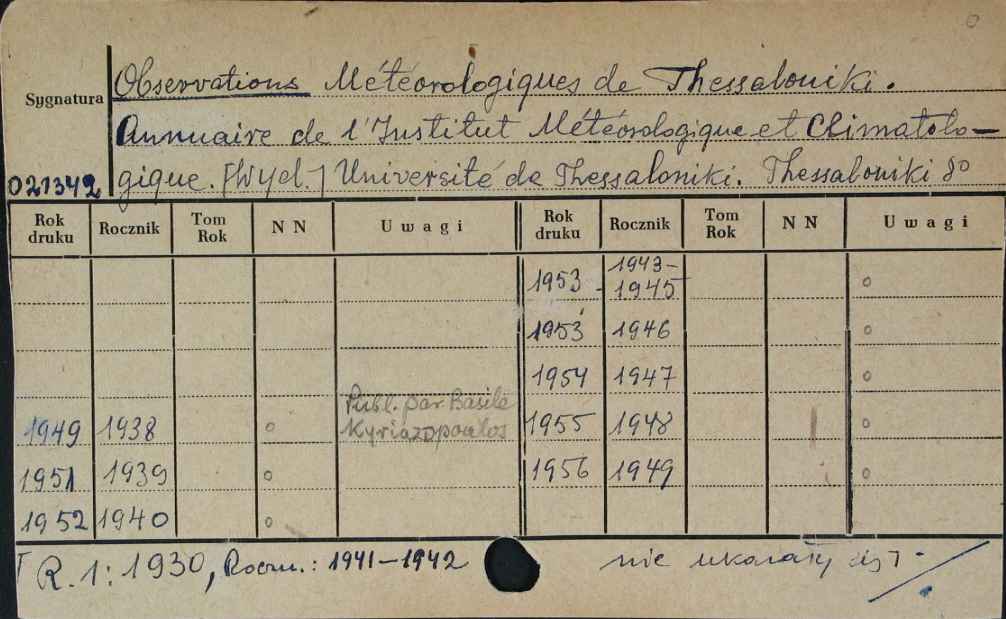 Observations Météorologiques de Thessaloniki.
Sygnatura
Annuaire de l'Institut Météorologique et Climatolo-
021342 gique. [Wyd.] Université de Thessaloniki. Thessaloniki 8°
Rok druku Rocznik Tom Rok NN Uwagi Rok druku Rocznik Tom Rok NN Uwagi
1953 1943-1945
1953 1946
1954 1947
1949 1938 Publ. par Basile Kyriazopoulos 1955 1948
1951 1939 1956 1949
1952 1940
R. 1: 1930, Roczn.: 1941-1942 nie ukazały się